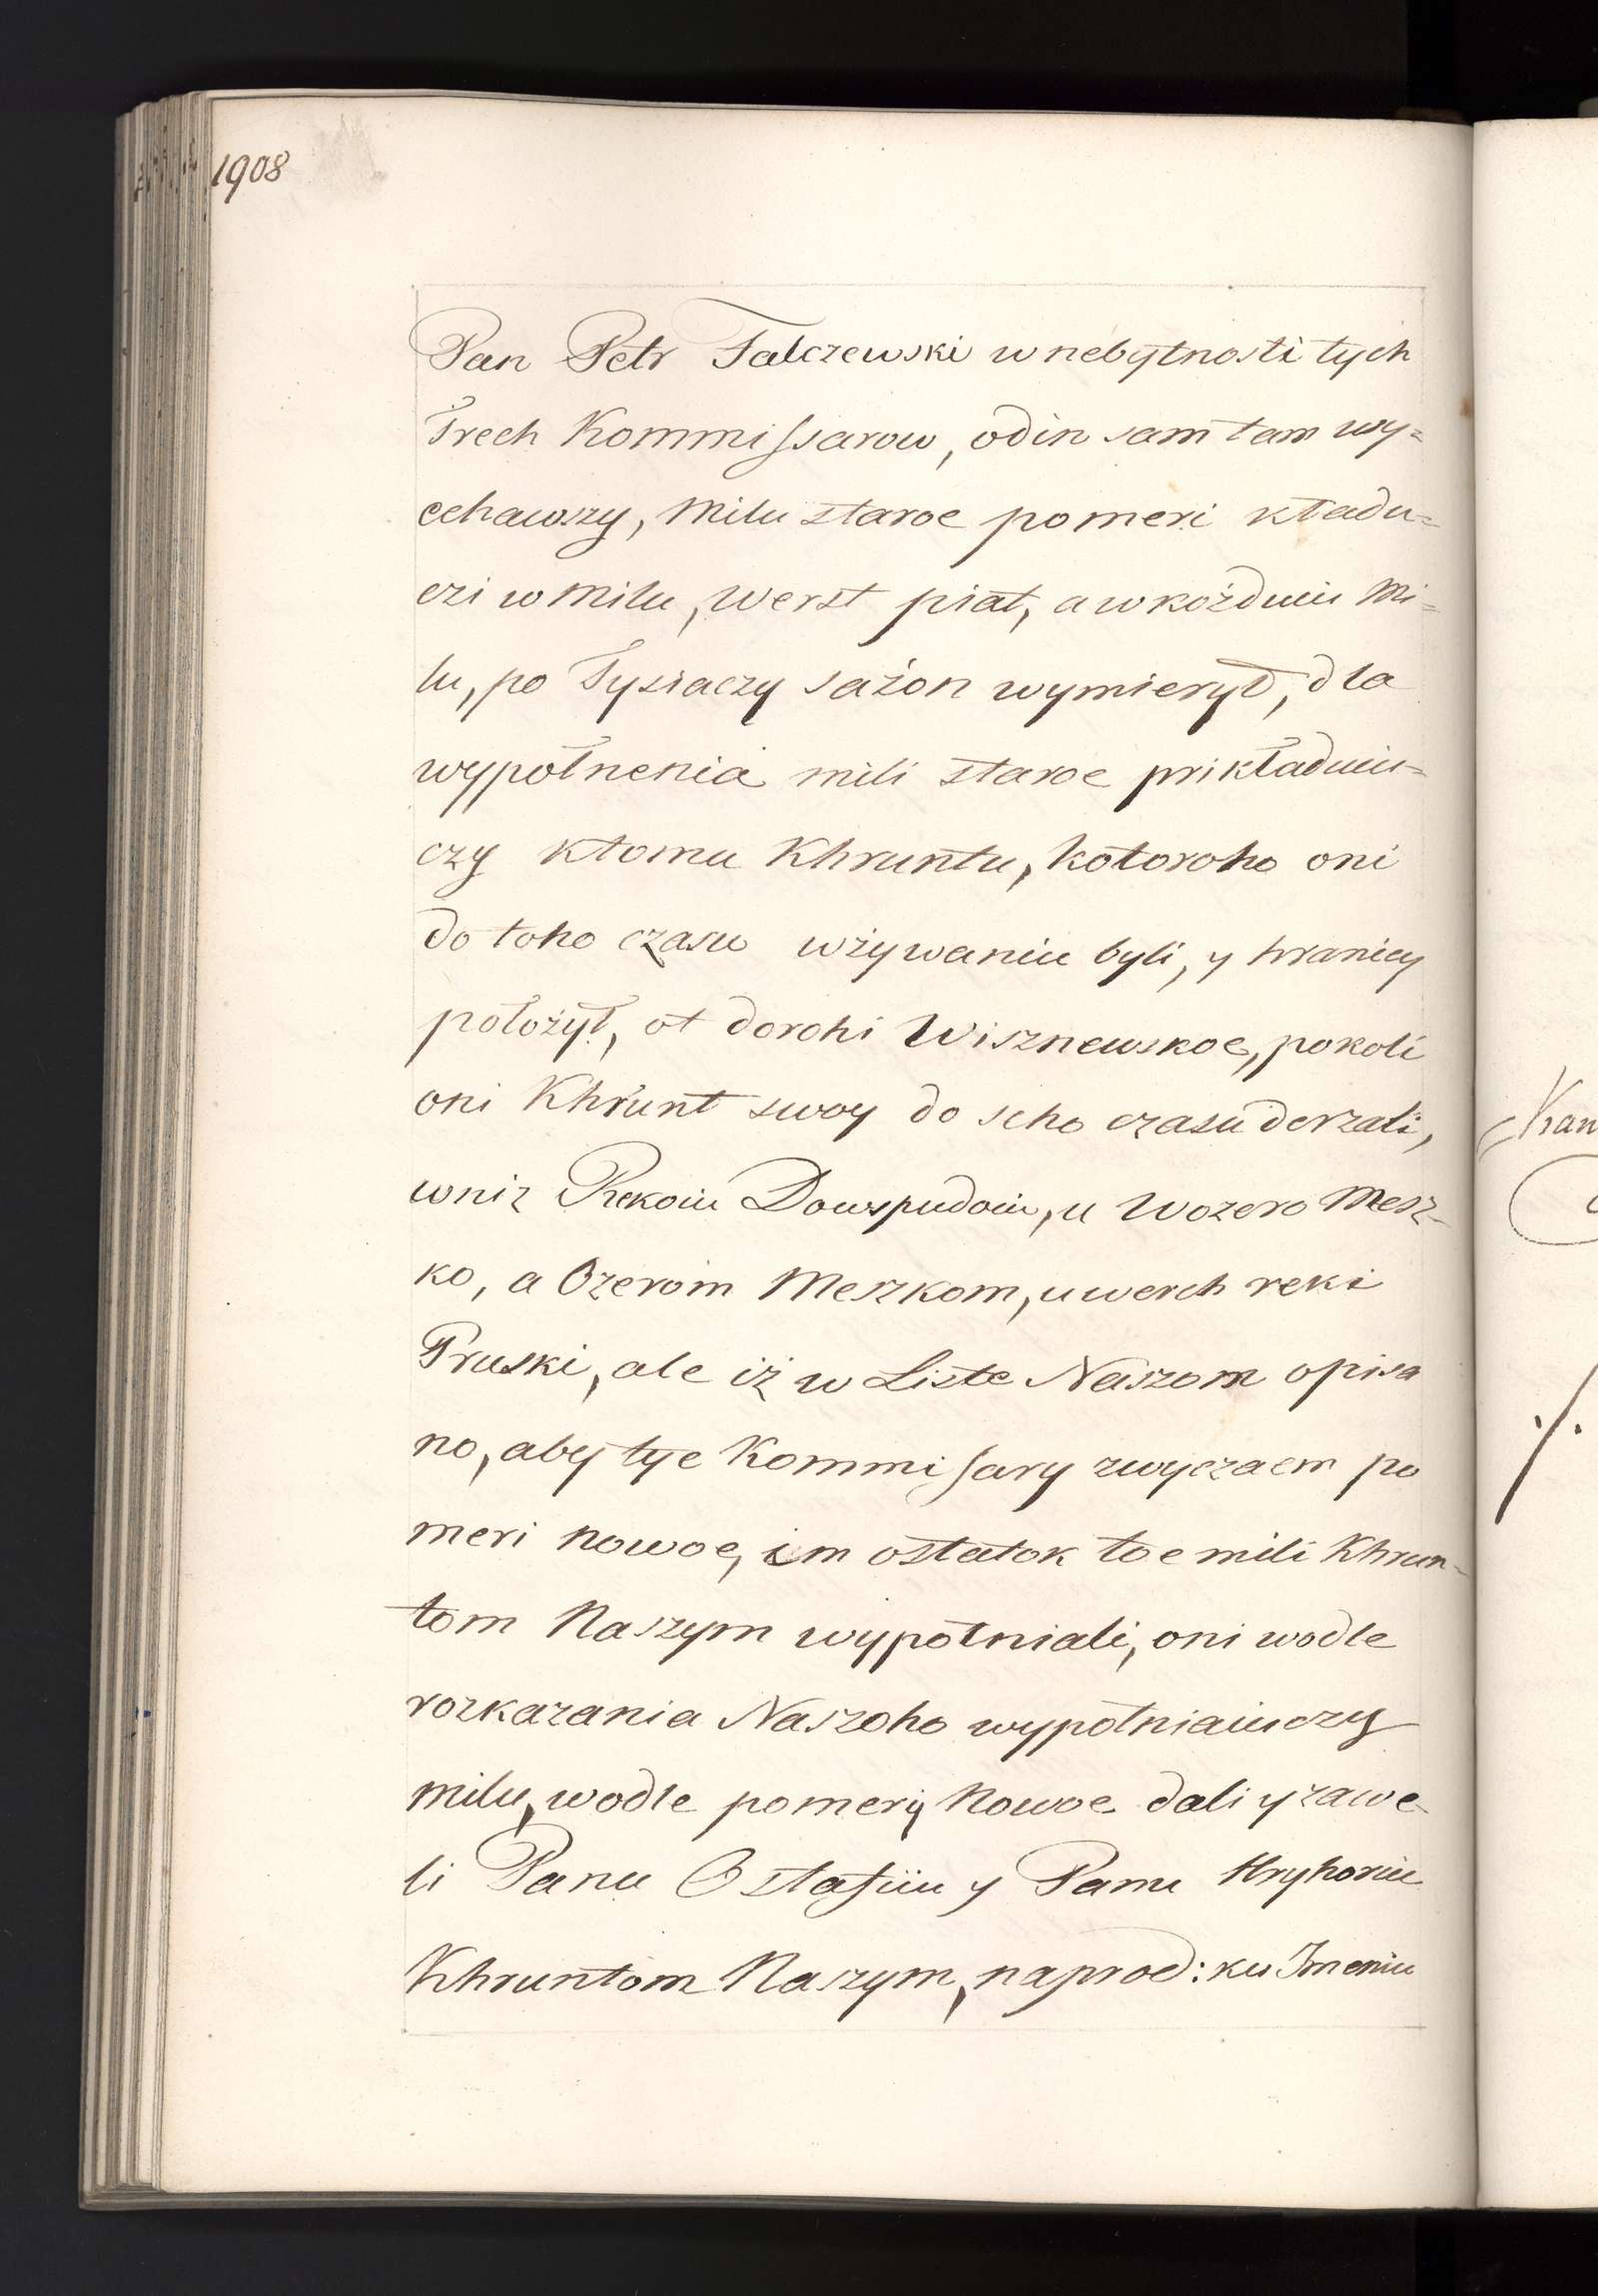 1908
Pan Petr Falczewski w nebytnosti tych
Trech Kommissarow, odin sam tam wy=
echawszy, Milu staroe pomeri kładu=
czi w Milu, Werst piat, a w kożduiu Mi=
lu, po Tysiaczy sażon wymierył, dla
wypołnenia mili staroe prikładuiu=
czy ktomu Khruntu, kotoroho oni
do toho czasu wżywaniu byli, y hranicy
położył, ot dorohi Wisznewskoe, pokoli
oni Khrunt swoy do seho czasu derzali,
wniz Rekoiu Dowspudoiu, u Wozero Mesz-
ko, a Ozerom Meszkom, uwerch reki
Pruski, ale iż w Liste Naszom opisa
no, aby tye Kommisary zwyczaem po
meri nowoe, im ostatok toe mili Khrun-
tom Naszym wypołniali, oni wodle
rozkazania Naszoho wypołniaiuczy
milu, wodle pomery Nowoe dali y zawe-
li Panu Ostafiiu y Panu Hryhoriu
Khruntom Naszym, naprod: ku Imeniu
Kran
./.